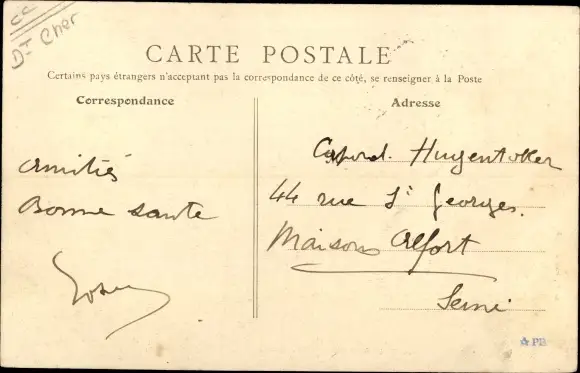 Dt Cher
CARTE POSTALE
Certains pays étrangers n'acceptant pas la correspondance de ce côté, se renseigner à la Poste
Correspondance
Amitiés
Bonne sante
Adresse
Hugentobler
44 rue St Georges.
Maisons Alfort
Seine
PB